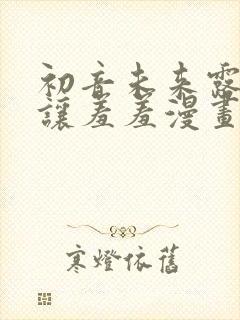 初音未来露
讓羞羞漫畫
寒燈依舊